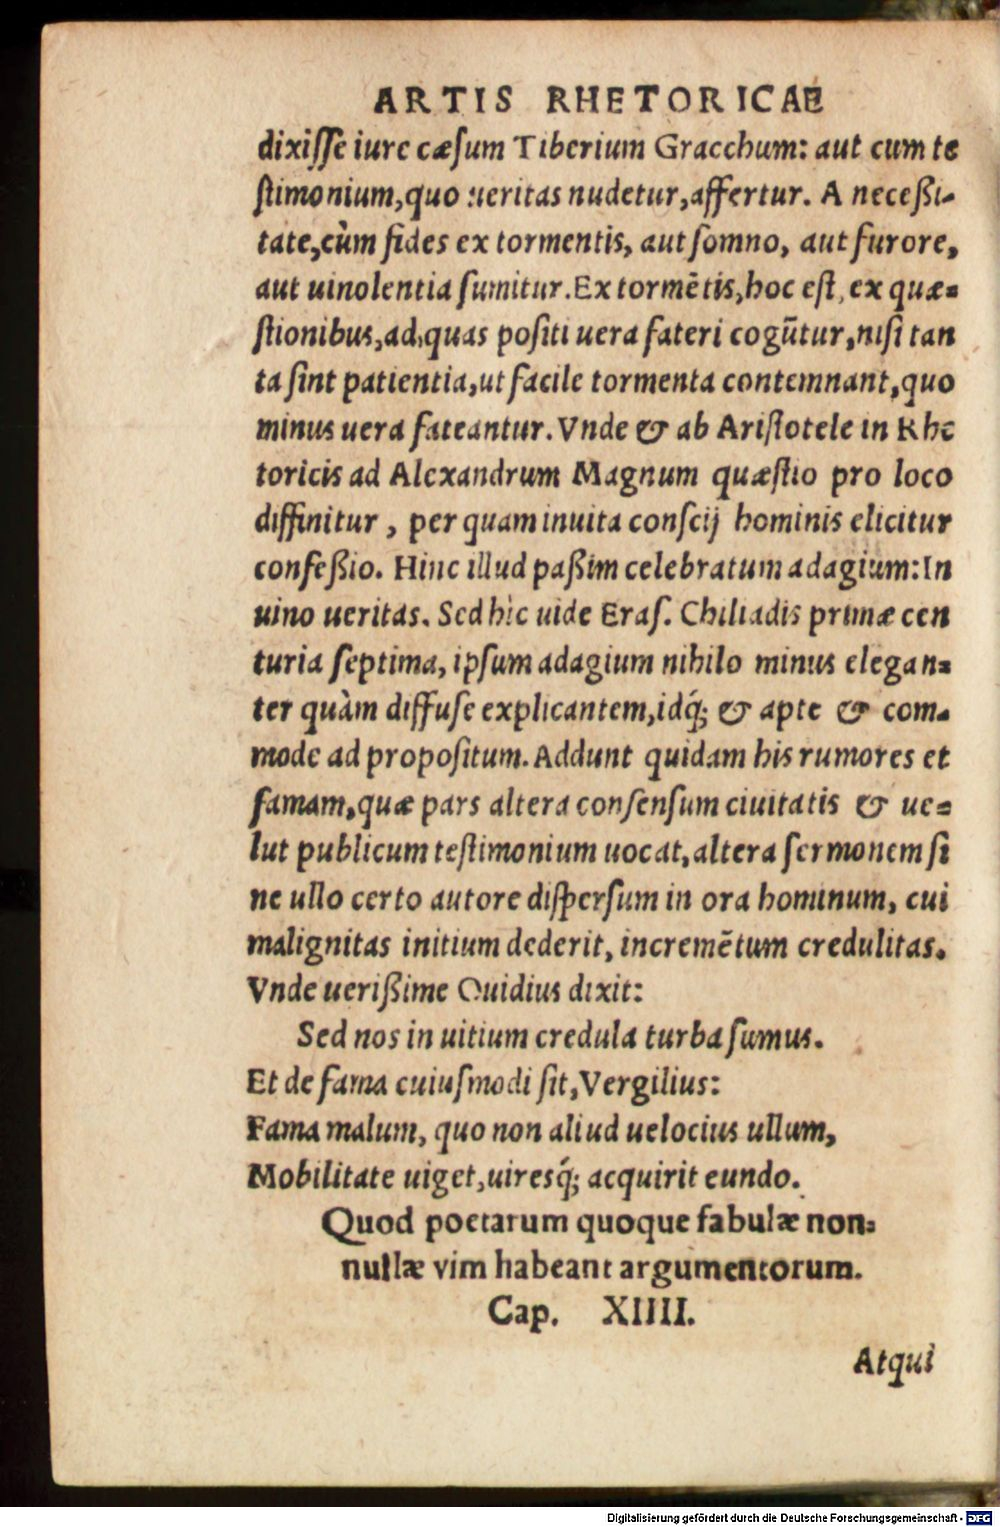 ARTIS RHETORICAE
dixiſſe iure cæſum Tiberium Gracchum: aut cum te
ſtimonium, quo ueritas nudetur, affertur. A neceßi-
tate, cùm fides ex tormentis, aut ſomno, aut furore,
aut uinolentia ſumitur. Ex tormētis, hoc eſt, ex quæ-
ſtionibus, ad quas poſiti uera fateri cogūtur, niſi tan
ta ſint patientia, ut facile tormenta contemnant, quo
minus uera fateantur. Vnde & ab Ariſtotele in Rhe
toricis ad Alexandrum Magnum quæſtio pro loco
diffinitur, per quam inuita conſcij hominis elicitur
confeßio. Hinc illud paßim celebratum adagium: In
uino ueritas. Sed hìc uide Eraſ. Chiliadis primæ cen
turia ſeptima, ipſum adagium nihilo minus elegan-
ter quàm diffuſe explicantem, idq́; & apte & com-
mode ad propoſitum. Addunt quidam his rumores et
famam, quæ pars altera conſenſum ciuitatis & ue-
lut publicum teſtimonium uocat, altera ſermonem ſi
ne ullo certo autore diſperſum in ora hominum, cui
malignitas initium dederit, incremētum credulitas.
Vnde uerißime Ouidius dixit:
Sed nos in uitium credula turba ſumus.
Et de fama cuiuſmodi ſit, Vergilius:
Fama malum, quo non aliud uelocius ullum,
Mobilitate uiget, uiresq́; acquirit eundo.
Quod poetarum quoque fabulæ non-
nullæ vim habeant argumentorum.
Cap. XIIII.
Atqui
Digitalisierung gefördert durch die Deutsche Forschungsgemeinschaft - DFG